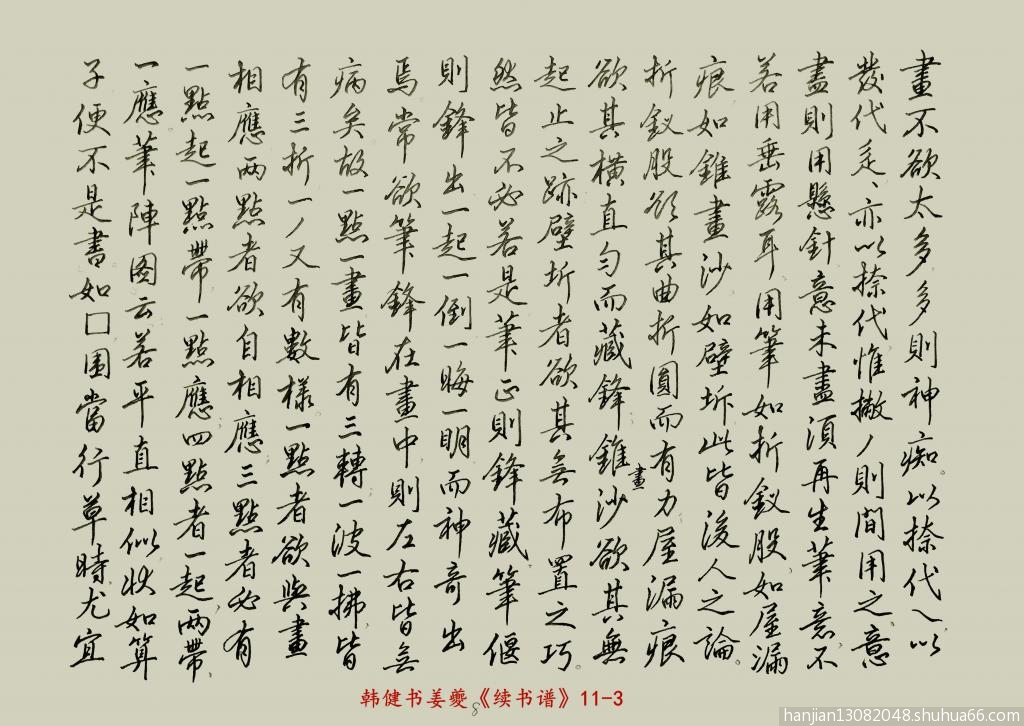 畫不欲太多多則神痴以捺代乀以
發代辵辵亦以捺代惟撇丿則間用之意
盡則用懸針意未盡須再生筆意不
若用垂露耳用筆如折釵股如屋漏
痕如錐畫沙如壁坼此皆後人之論
折釵股欲其曲折圓而有力屋漏痕
欲其橫直勻而藏鋒錐畫沙欲其無
起止之跡壁坼者欲其無布置之巧
然皆不必若是筆正則鋒藏筆偃
則鋒出一起一倒一晦一明而神奇出
焉常欲筆鋒在畫中則左右皆無
病矣故一點一畫皆有三轉一波一拂皆
有三折一丿又有數樣一點者欲與畫
相應两點者欲自相應三點者必有
一點起一點帶一點應四點者一起两帶
一應筆陣图云若平直相似狀如算
子便不是書如口围當行草時尤宜
韩健书姜夔《续书谱》11-3
8
hanjian13082048.shuhua66.com